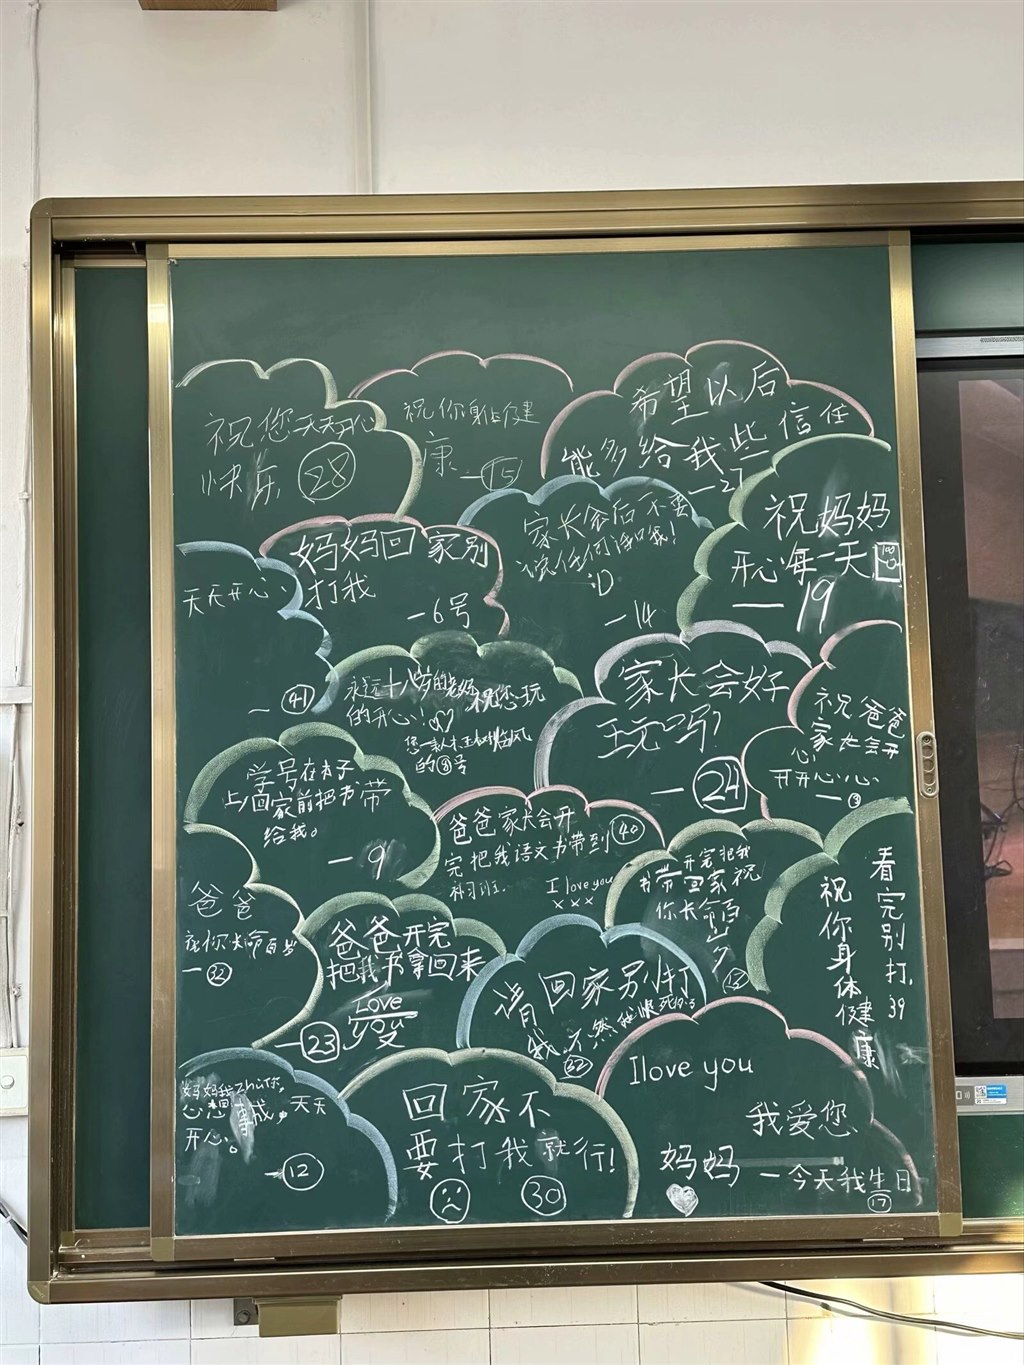 祝您天天开心
快乐 28
祝你身体健
康 —15
希望以后
能多给我些信任
—27
天天开心
— 41
妈妈回家别
打我
—6号
家长会后不要
:D
—14
祝妈妈
开心每一天 100
—19
永远十八岁的老妈祝您玩
的开心!
的⑧号
家长会好
玩吗?
— 24
祝爸爸
家长会开
心,
开开心心
— 3
学号在本子
上,回家前把书带
给我。
—9
爸爸家长会开 40
完把我语文书带到
补习班.
I love you
×××
开完把我
书带回家祝
你长命百
岁
看完别打,39
祝你身体健康
爸爸
祝你长命百岁
—32
爸爸开完
把我书拿回来
Love
you
—23 爱
请回家别打
我,不然
I love you
我爱您
妈妈 —今天我生日
17
妈妈我zhù你,
心想事成,天天
开心。
—12
回家不
要打我就行!
30